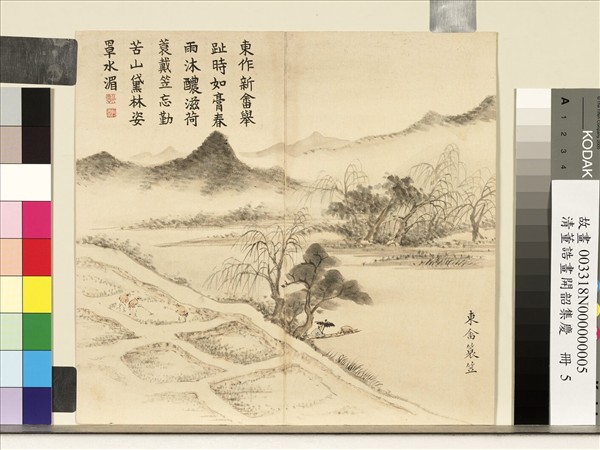 東作新畬舉
趾時如膏春
雨沐醲滋荷
蓑戴笠忘勤
苦山黛林姿
罩水湄
東畬簑笠
KODAK
A 1 2 3 4
故畫 003318N000000005
清董誥畫開韶集慶 冊 5